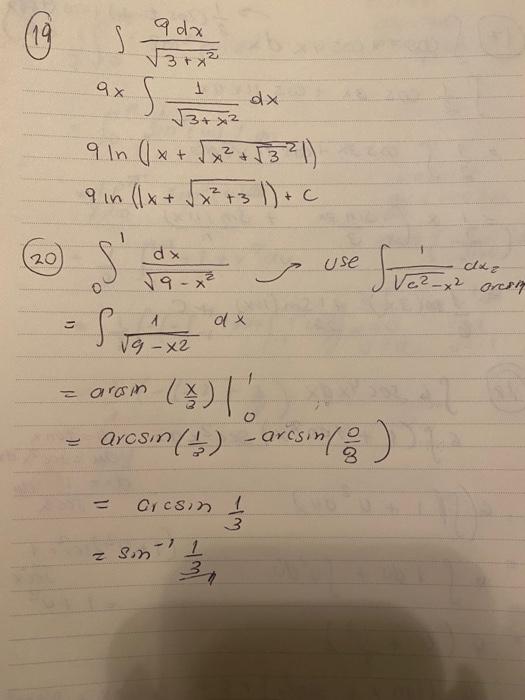 19 ∫ 9dx / √(3+x²)
9x ∫ 1/√(3+x²) dx
9 ln (|x + √(x² + √3²)|)
9 ln (|x + √(x² + 3)|) + C
20 ∫₀¹ dx / √(9 - x²) → use ∫ 1/√(c² - x²) dx =
= ∫ 1/√(9 - x2) dx
= arcsin (x/3) |₀¹
= arcsin(1/3) - arcsin(0/3)
= arcsin 1/3
= sin⁻¹ 1/3